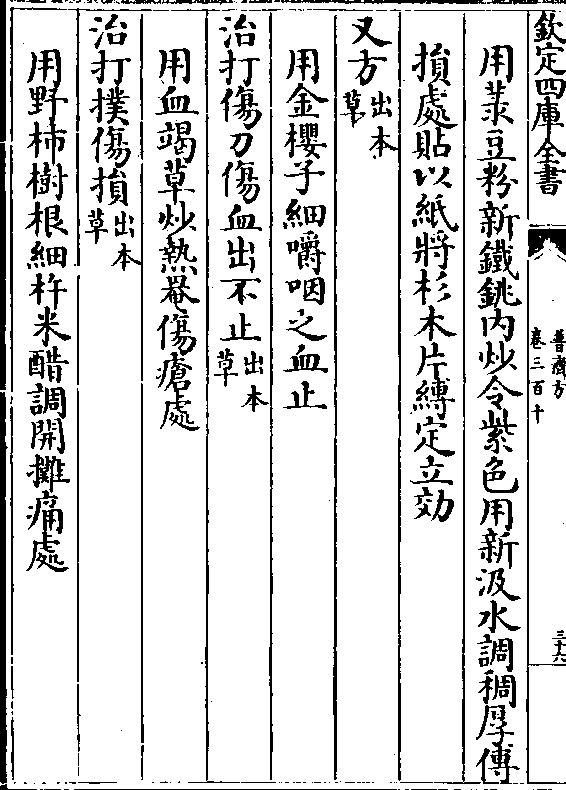 欽定四庫全書
普濟方
卷三百十
三十六
用菉豆粉新鐵銚内炒令紫色用新汲水調稠厚傅
損處貼以紙將杉木片縛定立効
又方出本草
用金櫻子細嚼咽之血止
治打傷刀傷血出不止出本草
用血竭草炒熱罨傷瘡處
治打撲傷損出本草
用野柿樹根細杵米醋調開攤痛處